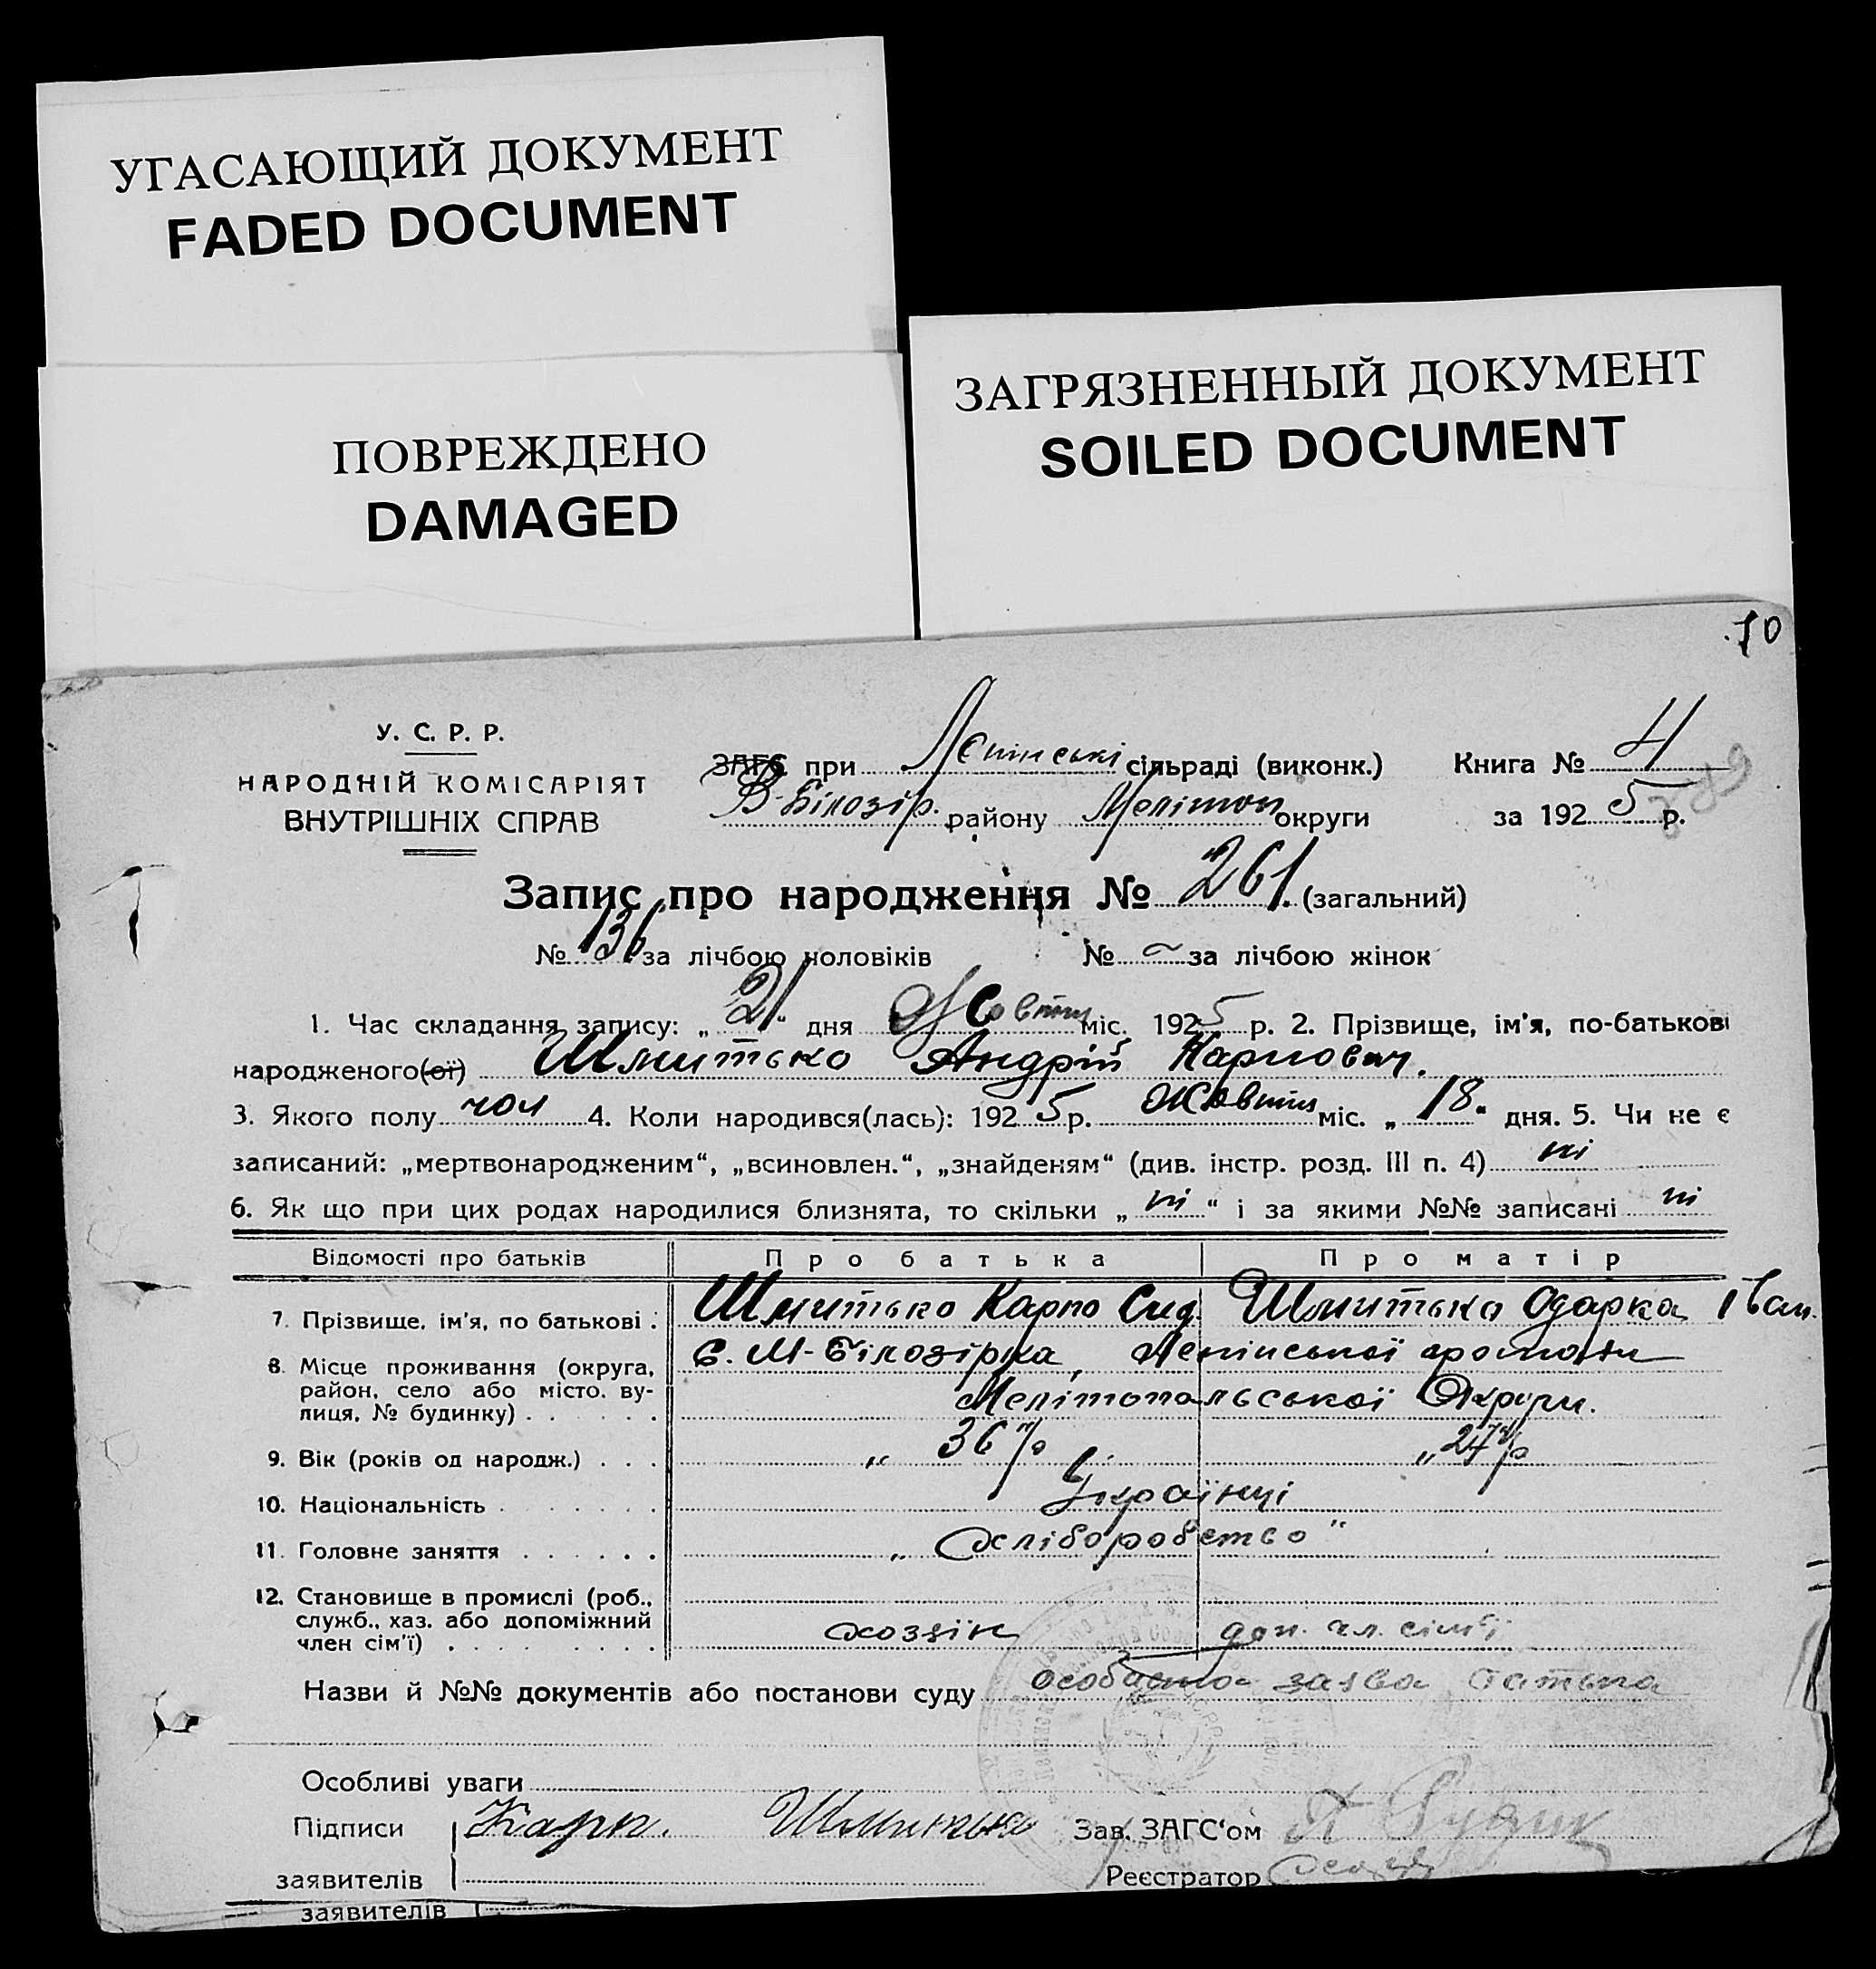 УГАСАЮЩИЙ ДОКУМЕНТ
FADED DOCUMENT
ПОВРЕЖДЕНО
DAMAGED
ЗАГРЯЗНЕННЫЙ ДОКУМЕНТ
SOILED DOCUMENT
70
У. С. Р. Р.
НАРОДНІЙ КОМІСАРІЯТ
ВНУТРІШНІХ СПРАВ
ЗАГС при Лєнінські сільраді (виконк.)
В-Білозір. району Мелітоп округи
Книга №
за 1925 р.
Запис про народження № 261 (загальний)
№ 136 за лічбою чоловіків № — за лічбою жінок
1. Час складання запису: „21“ дня Жовтня міс. 1925 р. 2. Прізвище, ім'я, по-батькові
народженого(ої) Шмитько Андрій Карпович.
3. Якого полу чол 4. Коли народився(лась): 1925 р. Жовтня міс. „18“ дня. 5. Чи не є
записаний: „мертвонародженим“, „всиновлен.“, „знайденям“ (див. інстр. розд. III п. 4) ні
6. Як що при цих родах народилися близнята, то скільки „ні“ і за якими №№ записані ні
Відомості про батьків Про батька Про матір
7. Прізвище, ім'я, по батькові: Шмитько Карпо Сид. Шмитька Одарка Іван.
8. Місце проживання (округа, район, село або місто, ву-
лиця, № будинку) С. М-Білозірка, Ленінської громади
Мелітопальської Округи.
9. Вік (років од народж.) „36 р „27 р
10. Національність Українці
11. Головне заняття „Хліборобство“
12. Становище в промислі (роб.,
служб., хаз. або допоміжний
член сім'ї) хозяїн доп. чл. сім'ї
Назви й №№ документів або постанови суду особиста заява батька
Особливі уваги
Підписи Карп. Шмитько Зав. ЗАГС'ом
заявителів Реєстратор
заявителів